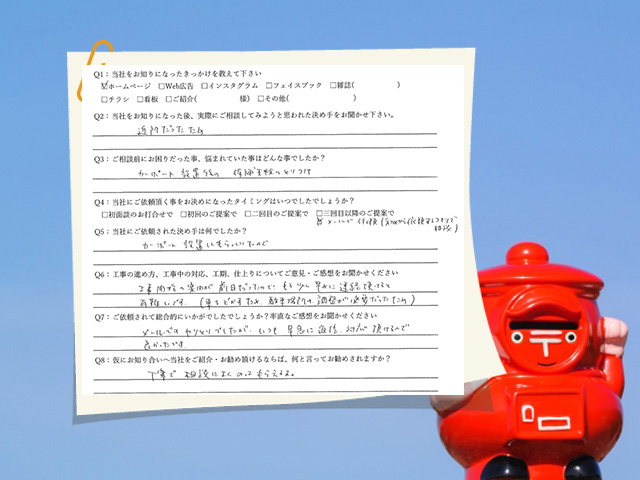 Q1：当社をお知りになったきっかけを教えて下さい
☑ホームページ □Web広告 □インスタグラム □フェイスブック □雑誌( )
□チラシ □看板 □ご紹介( 様) □その他( )
Q2：当社をお知りになった後、実際にご相談してみようと思われた決め手をお聞かせ下さい。
近所だったため
Q3：ご相談前にお困りだった事、悩まれていた事はどんな事でしたか？
カーポート設置後の
Q4：当社にご依頼頂く事をお決めになったタイミングはいつでしたでしょうか？
□初面談のお打合せで □初回のご提案で □二回目のご提案で □三回目以降のご提案で
メールで
Q5：当社にご依頼された決め手は何でしたか？
カーポート設置してもらっていたので
Q6：工事の進め方、工事中の対応、工期、仕上りについてご意見・ご感想をお聞かせください
工事開始の案内が前日だったので、もう少し早めに連絡頂けると
有難いです。(車をどかすため、駐車場所の調整が必要だったため)
Q7：ご依頼されて総合的にいかがでしたでしょうか？率直なご感想をお聞かせください
メールでのやりとりでしたが、いつも早急に返信、対応頂けたので
良かったです
Q8：仮にお知り合いへ当社をご紹介・お勧め頂けるならば、何と言ってお勧めされますか？
丁寧で相談によくのってもらえるよ。